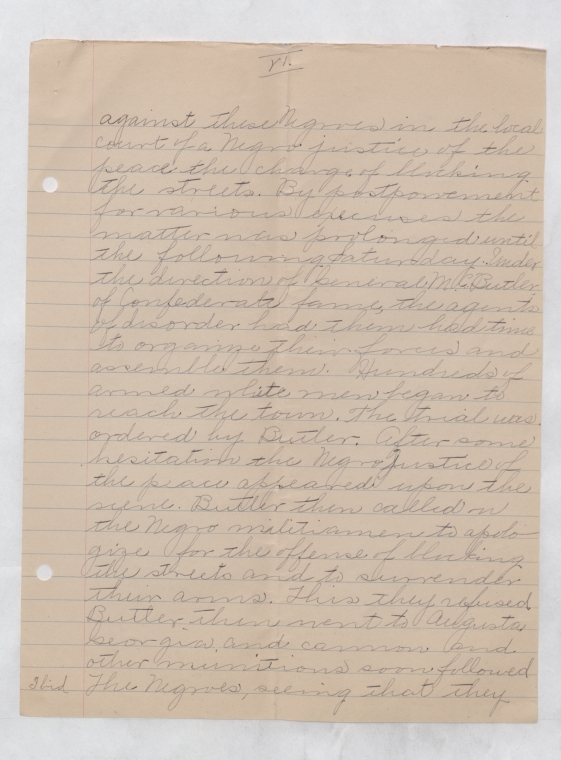 VI.
against these Negroes in the local
court of a Negro justice of the
peace the charge of blocking
the streets. By postponement
for various excuses the
matter was prolonged until
the following Saturday. Under
the direction of General M.C. Butler,
of Confederate fame, the agents
of disorder had them had time
to organize their forces and
assemble them. Hundreds of
armed white men began to
reach the town. The trial was
ordered by Butler. After some
hesitation the Negro Justice of
the peace appeared upon the
scene. Butler then called on
the Negro militiamen to apolo
gize for the offense of blocking
the streets and to surrender
their arms. This they refused.
Butler then went to Augusta,
Georgia, and cannon and
other munitions soon followed
Ibid The Negroes, seeing that they